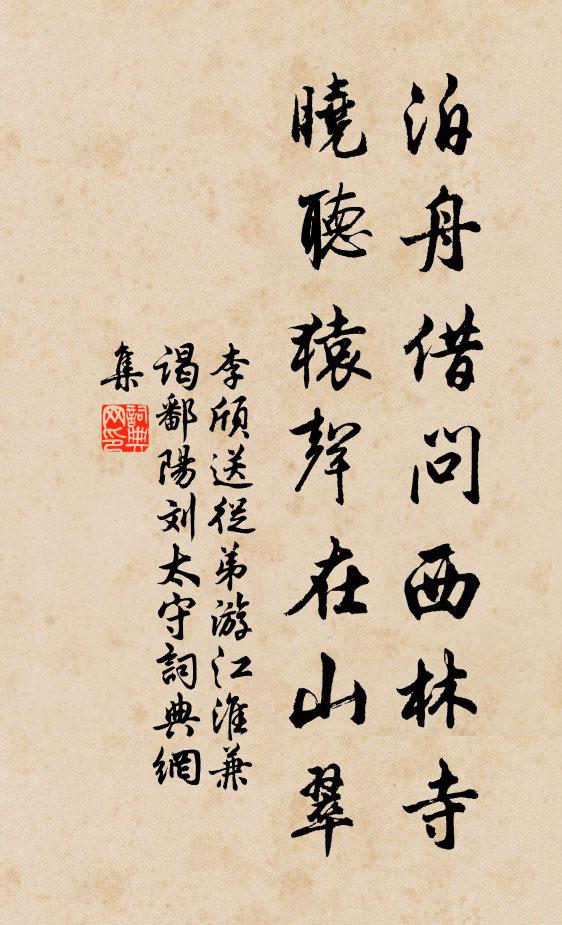 泊舟借問西林寺
曉聽猿聲在山翠
李頎送從弟游江淮兼
謁鄱陽刘太守詞典網
集
詞典
网印